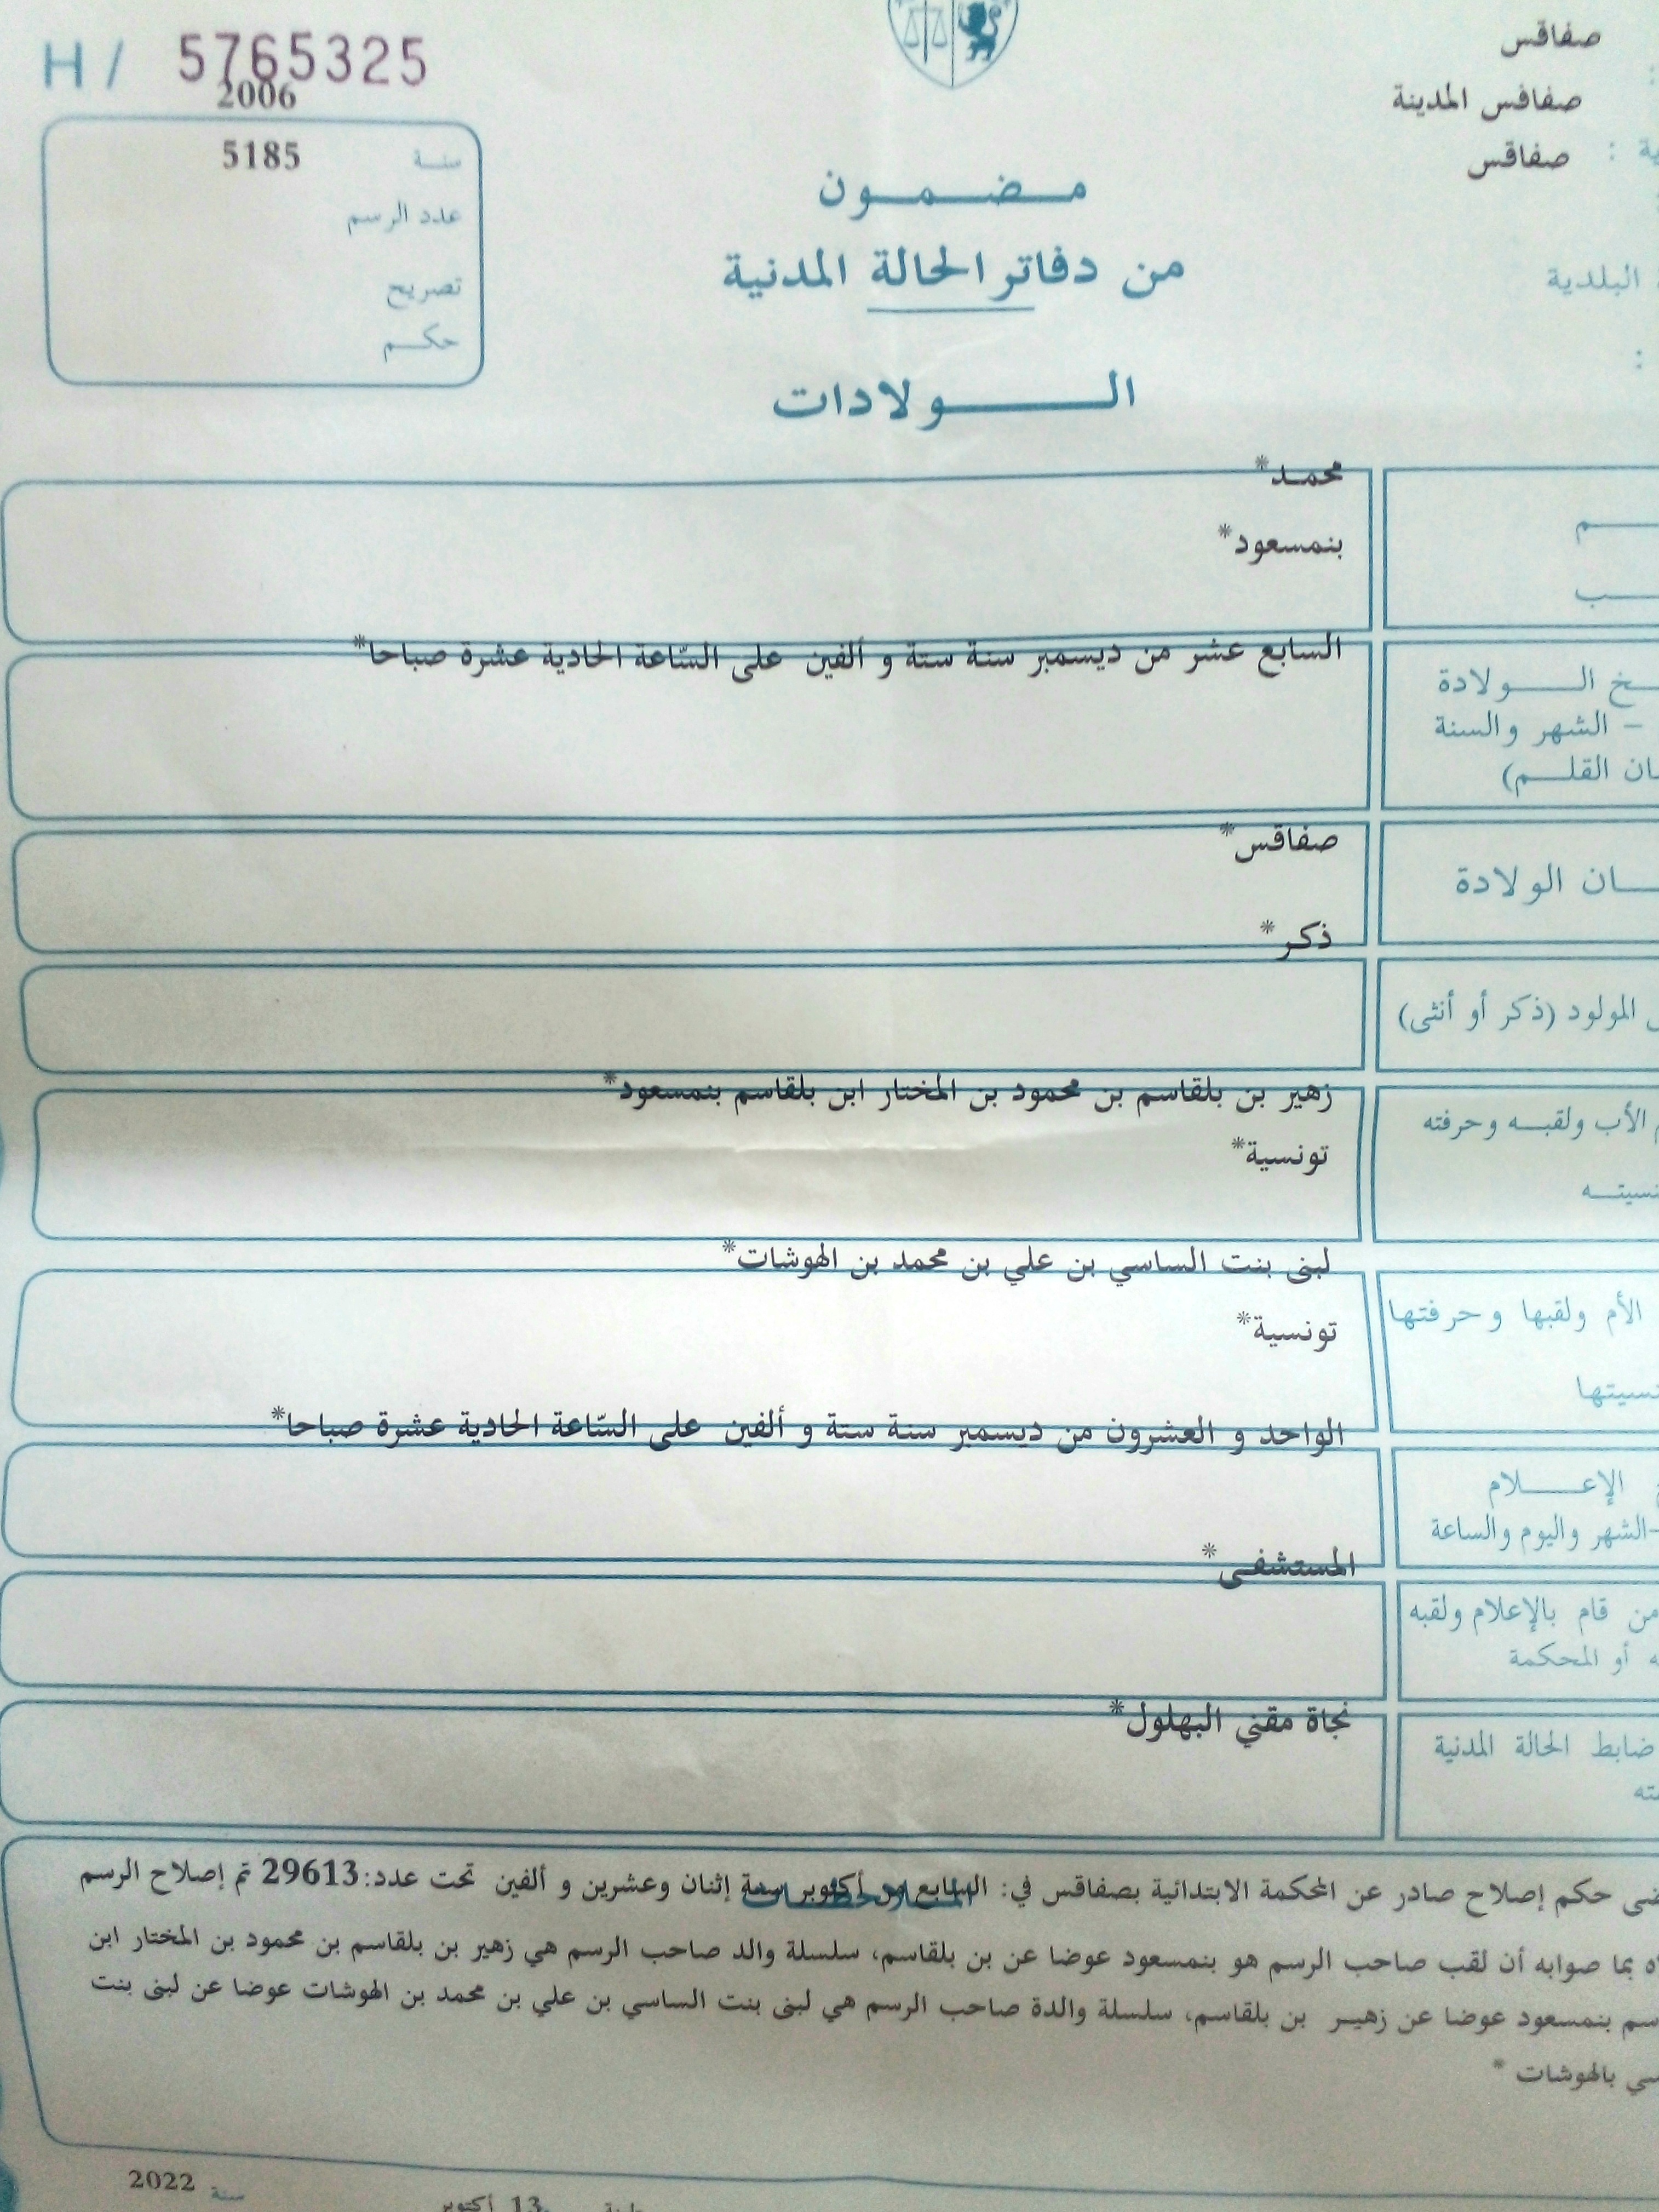 H / 5765325
صفاقس
2006
صفاقس المدينة
سنة 5185
صفاقس
مضمون
عدد الرسم
من دفاتر الحالة المدنية
البلدية
تصريح
حكم
الولادات
محمد*
بنمسعود*
السابع عشر من ديسمبر سنة ستة و ألفين على السّاعة الحادية عشرة صباحا*
الولادة
– الشهر والسنة
القلم)
صفاقس*
الولادة
ذكر*
المولود (ذكر أو أنثى)
زهير بن بلقاسم بن محمود بن المختار ابن بلقاسم بنمسعود*
الأب ولقبه وحرفته
تونسية*
لبنى بنت الساسي بن علي بن محمد بن الهوشات*
الأم ولقبها وحرفتها
تونسية*
الواحد و العشرون من ديسمبر سنة ستة و ألفين على السّاعة الحادية عشرة صباحا*
الإعلام
-الشهر واليوم والساعة
المستشفى*
من قام بالإعلام ولقبه
أو المحكمة
نجاة مقني البهلول*
ضابط الحالة المدنية
الملاحظات
حكم إصلاح صادر عن المحكمة الابتدائية بصفاقس في: السابع من أكتوبر سنة إثنان وعشرين و ألفين تحت عدد:29613 تم إصلاح الرسم
بما صوابه أن لقب صاحب الرسم هو بنمسعود عوضا عن بن بلقاسم، سلسلة والد صاحب الرسم هي زهير بن بلقاسم بن محمود بن المختار ابن
بنمسعود عوضا عن زهير بن بلقاسم، سلسلة والدة صاحب الرسم هي لبنى بنت الساسي بن علي بن محمد بن الهوشات عوضا عن لبنى بنت
بالهوشات *
13 أكتوبر سنة 2022